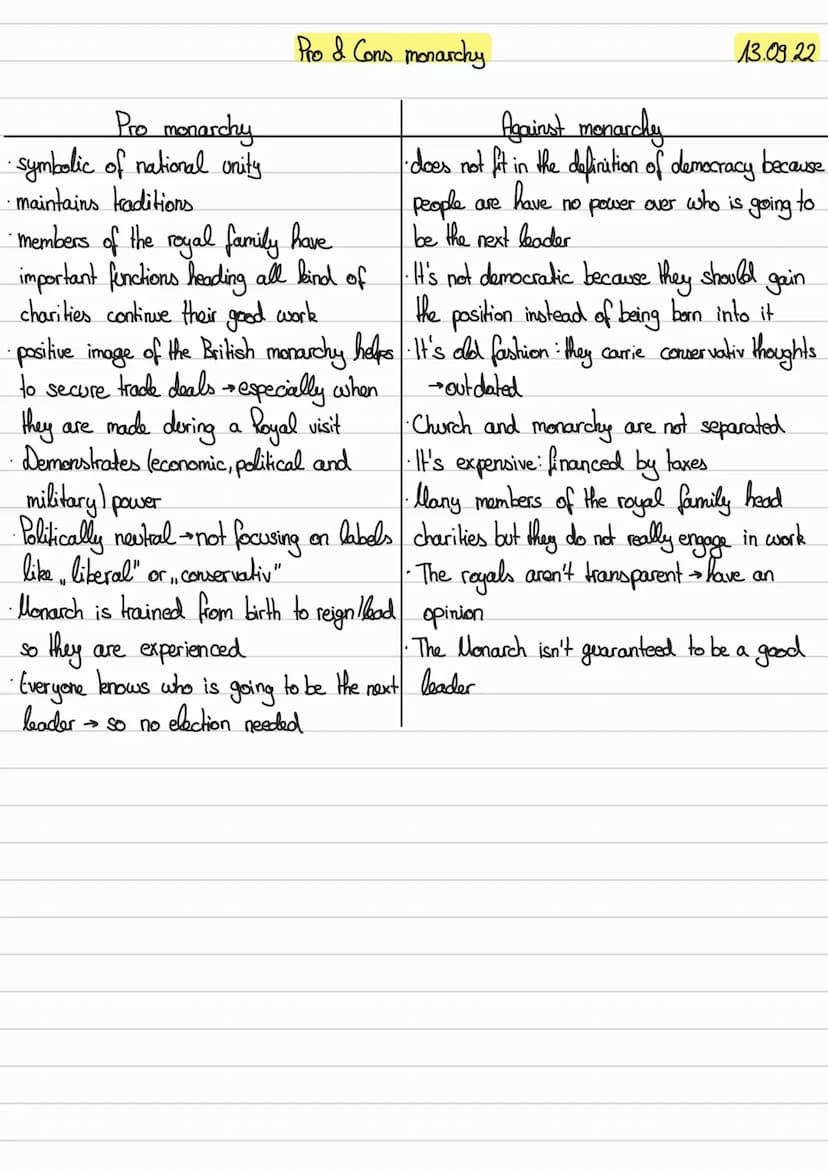 Pro & Cons monarchy
13.09.22
Pro monarchy
· symbolic of national unity
· maintains traditions
· members of the royal family have
important functions heading all kind of
charities continue their good work
· positive image of the British monarchy helps
to secure trade deals → especially when
they are made during a Royal visit
· Demonstrates (economic, political and
military) power
· Politically neutral → not focusing on labels
like „liberal" or „conservativ"
· Monarch is trained from birth to reign/lead
so they are experienced
· Everyone knows who is going to be the next
leader → so no election needed
Against monarchy
· does not fit in the definition of democracy because
people are have no power over who is going to
be the next leader
· It's not democratic because they should gain
the position instead of being born into it
· It's old fashion: they carrie conservativ thoughts
→ outdated
· Church and monarchy are not separated
· It's expensive: financed by taxes
· Many members of the royal family head
charities but they do not really engage in work
· The royals aren't transparent → have an
opinion
· The Monarch isn't guaranteed to be a good
leader